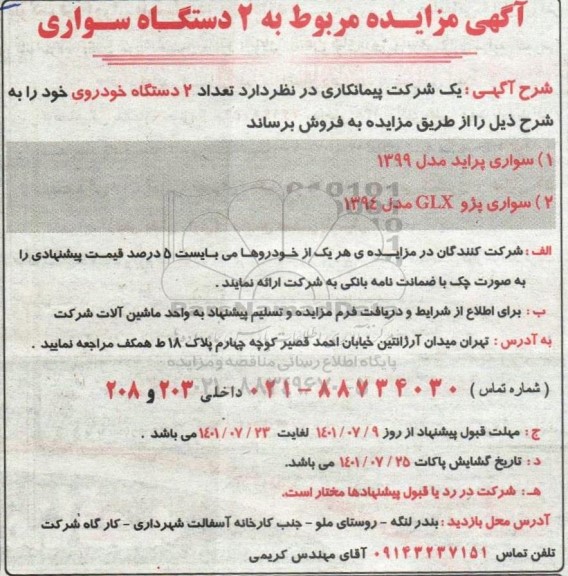 آگهی مزایده مربوط به ۲ دستگاه سواری
شرح آگهی : یک شرکت پیمانکاری در نظردارد تعداد ۲ دستگاه خودروی خود را به
شرح ذیل را از طریق مزایده به فروش برساند
۱) سواری پراید مدل ۱۳۹۹
۲) سواری پژو GLX مدل ۱۳۹۴
الف : شرکت کنندگان در مزایده ی هر یک از خودروها می بایست ۵ درصد قیمت پیشنهادی را
به صورت چک با ضمانت نامه بانکی به شرکت ارائه نمایند .
ب : برای اطلاع از شرایط و دریافت فرم مزایده و تسلیم پیشنهاد به واحد ماشین آلات شرکت
به آدرس : تهران میدان آرژانتین خیابان احمد قصیر کوچه چهارم پلاک ۱۸ ط همکف مراجعه نمایید .
پایگاه اطلاع رسانی مناقصه و مزایده
( شماره تماس ) ۸۸۷۳۴۰۳۰ - ۰۲۱ داخلی ۲۰۳ و ۲۰۸
ج : مهلت قبول پیشنهاد از روز ۹ / ۰۷ / ۱۴۰۱ لغایت ۲۳ / ۰۷ / ۱۴۰۱ می باشد .
د : تاریخ گشایش پاکات ۲۵ / ۰۷ / ۱۴۰۱ می باشد.
هـ : شرکت در رد یا قبول پیشنهادها مختار است.
آدرس محل بازدید : بندر لنگه - روستای ملو - جنب کارخانه آسفالت شهرداری - کار گاه شرکت
تلفن تماس ۰۹۱۴۳۲۳۷۱۵۱ آقای مهندس کریمی